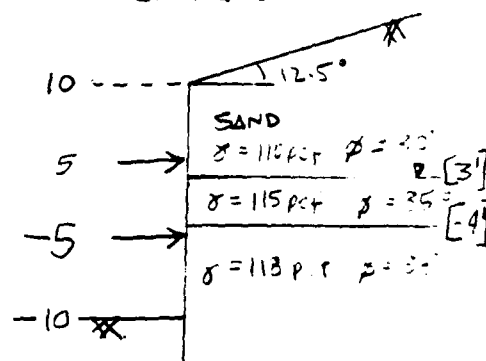 10
12.5°
SAND
γ = 110 pcf φ = 30°
5
[3']
γ = 115 pcf φ = 35°
[-4']
-5
γ = 118 pcf φ =
-10